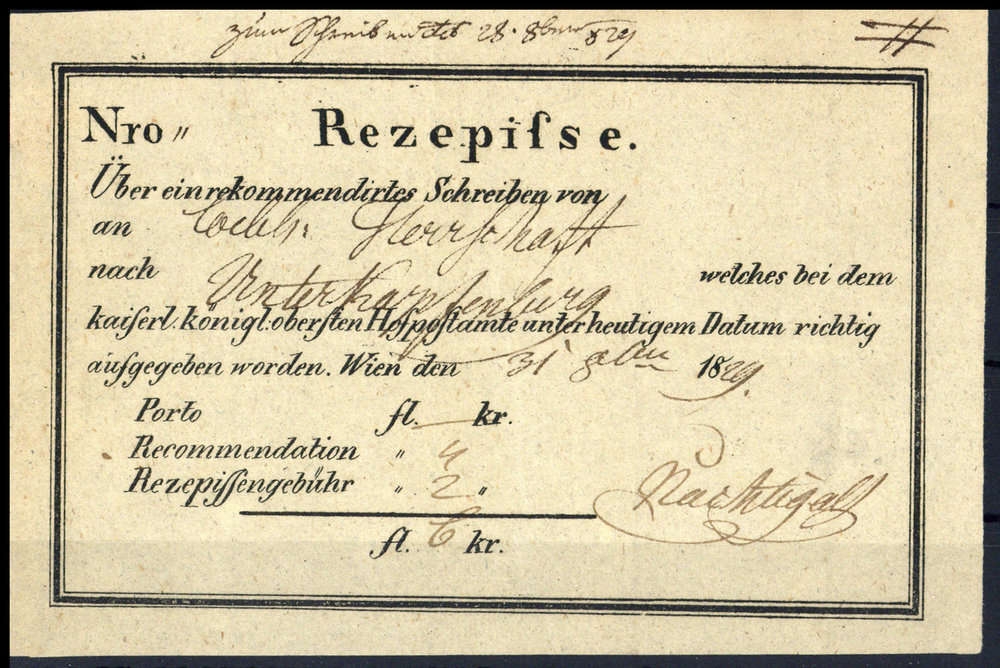 zum Schreiben des 28. 8ber 829
Nro „ Rezepiſse.
Über ein rekommendirtes Schreiben von
an Löbl: Herrschaft
nach Unterkapfenburg welches bei dem
kaiſerl. königl. oberſten Hofpoſtamte unter heutigem Datum richtig
aufgegeben worden. Wien den 31 8ber 1829.
Porto fl. — kr.
Recommendation „ 4
Rezepiſſengebühr „ 2 „
fl. 6 kr.
Nachtigall